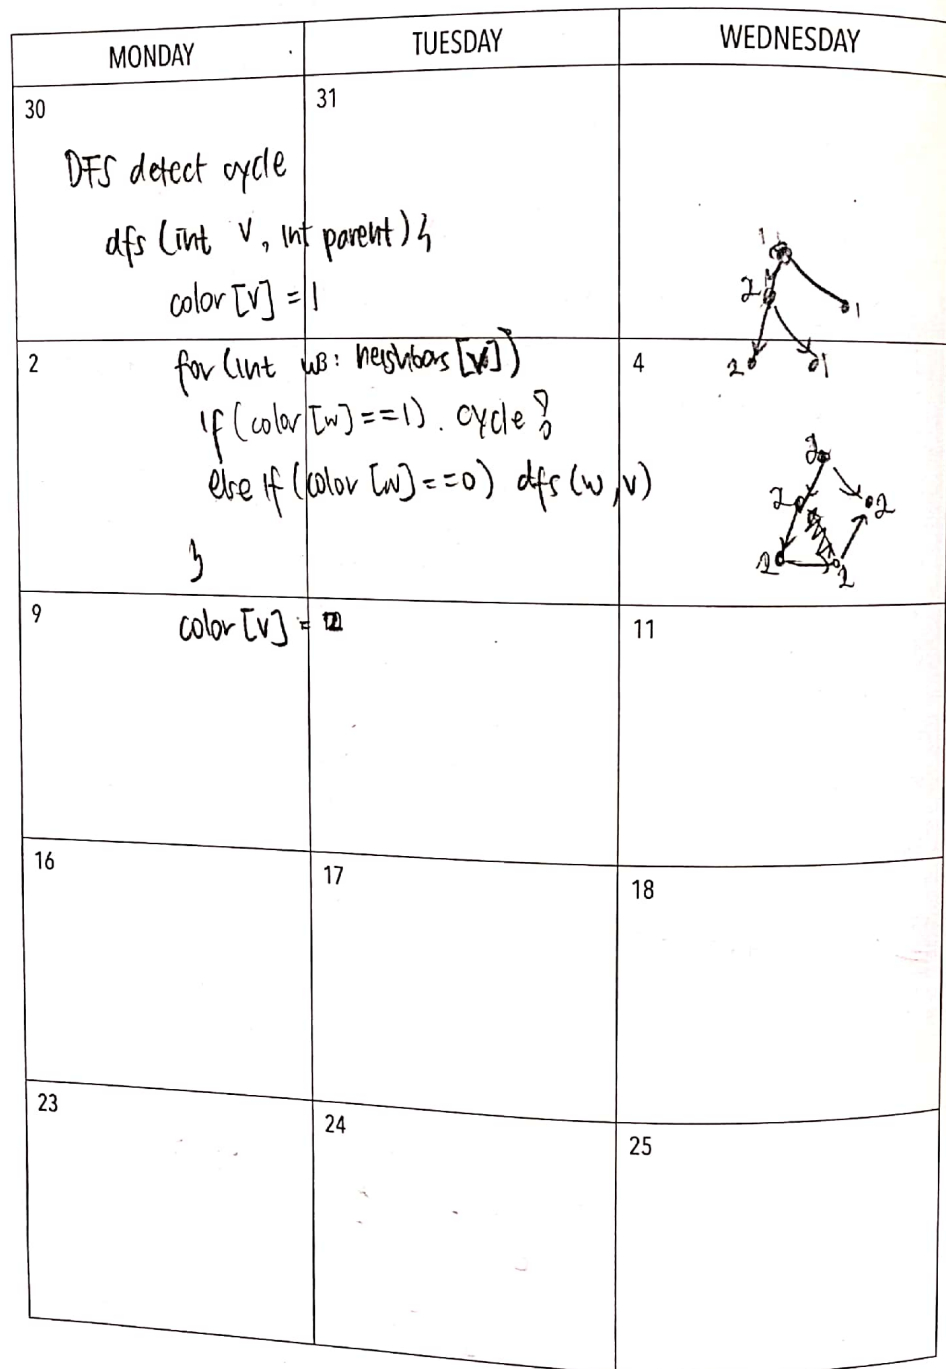 MONDAY TUESDAY WEDNESDAY
30 31
DFS detect cycle
dfs (int v, int parent) {
color [v] = 1
1
2 1
2 1
2 4
for (int w : neighbors [v])
if (color [w] == 1) . cycle
else if (color [w] == 0) dfs (w, v)
}
2
2 2
2 2
9 11
color [v] = 2
16 17 18
23 24 25